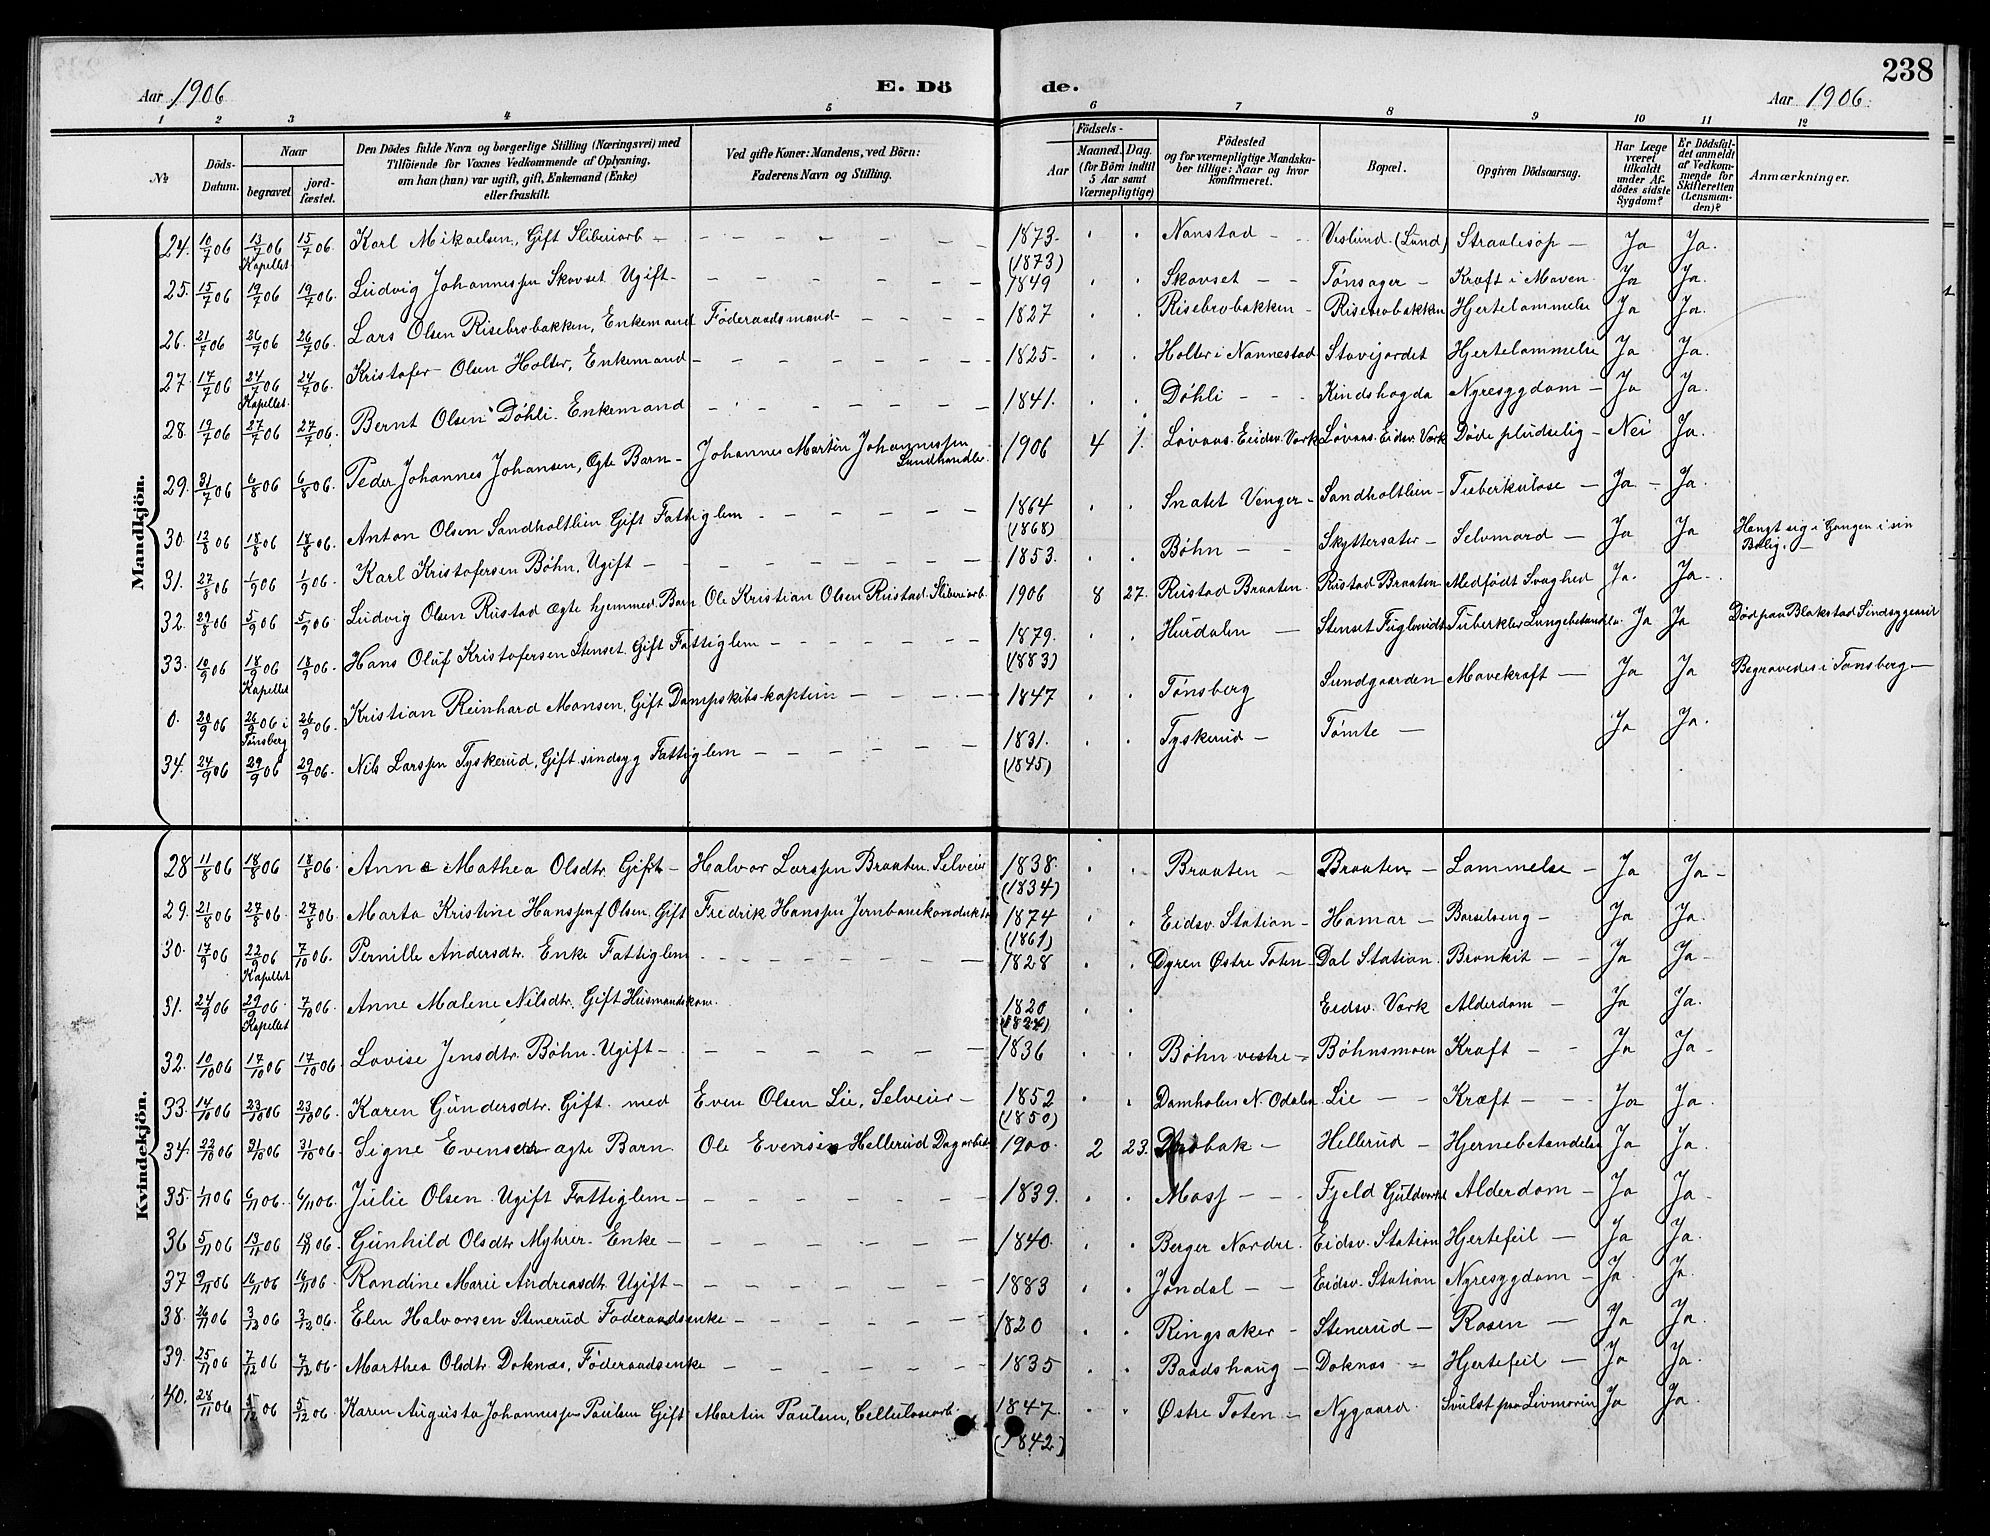 238
Aar 1906 E. Dö de. Aar 1906.
1 2 3 4 5 6 7 8 9 10 11 12
№ Döds-Datum. Naar begravet jordfæstet. Den Dödes fulde Navn og borgerlige Stilling (Næringsvei) med Tilföiende for Voxnes Vedkommende af Oplysning, om han (hun) var ugift, gift, Enkemand (Enke) eller fraskilt. Ved gifte Koner: Mandens, ved Börn: Faderens Navn og Stilling. Födsels- Aar Maaned. Dag. (for Börn indtil 5 Aar samt Værnepligtige) Födested og for værnepligtige Mandskaber tillige: Naar og hvor konfirmeret. Bopæl. Opgiven Dödsaarsag. Har Læge været tilkaldt under Afdödes sidste Sygdom? Er Dödsfaldet anmeldt af Vedkommende for Skifteretten (Lensmanden)? Anmærkninger.
Mandkjön.
24. 10/7 06 13/7 06 Kapellet 15/7 06. Karl Mikaelsen, Gift Sliberiarb 1873. (1873) Nanstad Veslund (Lund) Straalesop Ja Ja.
25. 15/7 06 19/7 06 19/7 06. Ludvig Johannessen Skovset Ugift 1849 Skovset Tønsager Kræft i Maven Ja Ja.
26. 21/7 06 26/7 06 26/7 06. Lars Olsen Risebrobakken, Enkemand Føderaadsmand 1827 Risebrobakken Risebrobakken Hjertelammelse Ja Ja.
27 17/7 06 24/7 06 Kapellet. 24/7 06. Kristofer Olsen Holter, Enkemand 1825. Holter i Nannestad Stavijordet Hjertelammelse Ja Ja.
28. 19/7 06 27/7 06 27/7 06. Bernt Olsen Døhli. Enkemand 1841. Døhli Kindshagda Nyresygdom Ja Ja.
29. 31/7 06 6/8 06 6/8 06. Peder Johannes Johansen, Ægte Barn Johannes Martin Johannessen Landhandler. 1906 4 1. Løvaas. Eidsv. Værk Løvaas. Eidsv. Værk Døde pludselig Nei Ja.
30. 12/8 06 18/8 06 18/8 06. Anton Olsen Sandholtlien Gift Fattiglem 1864 (1868) Snatet Venger Sandholtlien Tuberkulose Ja Ja.
31. 27/8 06 1/9 06 1/9 06. Karl Kristofersen Bøhn, Ugift 1853. Bøhn Skyttersæter Selvmord Ja Ja Hængt sig i Gangen i sin Bolig.
32. 29/8 06 5/9 06 5/9 06. Ludvig Olsen Rustad ægte hjemmed. Barn Ole Kristian Olsen Rustad Sliberiarb. 1906 8 27. Rustad Braaten. Rustad Braaten Medfødt Svaghed Ja. Ja.
33. 10/9 06 18/9 06 Kapellet 18/9 06. Hans Oluf Kristofersen Stenset. Gift Fattiglem 1879. (1883) Hurdalen Stenset Ja Ja Død paa Blakstad Sindsygeasil
0. 20/9 06 26/9 06 i Tønsberg 26/9 06. Kristian Reinhard Monsen, Gift Dampskibskaptein 1847 Tønsberg Sundgaarden Mavekræft Ja Ja Begravedes i Tønsberg
34. 24/9 06 29/9 06 29/9 06. Nils Larssen Tyskerud, Gift sindsyg Fattiglem 1831. (1845) Tyskerud Tømte Ja Ja.
Kvindekjön.
28 11/8 06 18/8 06 18/8 06. Anne Mathea Olsdtr. Gift Halvor Larssen Braaten. Selveier 1838. (1834) Braaten Braaten Lammelse Ja Ja
29. 21/8 06 27/8 06 27/8 06. Marta Kristine Hanssen f Olsen. Gift Fredrik Hanssen Jernbanekonduktør 1874 (1861) Eidsv. Station Hamar Barselseng Ja Ja.
30. 17/9 06 22/9 06 Kapellet 7/10 06. Pernille Andersdtr. Enke Fattiglem 1828 Dyren Østre Toten Dal Station. Bronkit Ja Ja
31. 24/9 06 29/9 06. Kapellet 7/10 06. Anne Malene Nilsdtr. Gift Husmandskone. 1820 (1824) Eidsv. Værk Alderdom Ja Ja.
32. 10/10 06 17/10 06 17/10 06. Lovise Jensdtr. Bøhn. Ugift 1836 Bøhn vestre Bøhnsmoen Kræft Ja Ja
33. 14/10 06 23/10 06 23/10 06. Karen Gundersdtr. Gift med Even Olsen Lie, Selveier 1852 (1850) Damholen N. Odalen Lie Kræft Ja Ja.
34. 22/10 06 31/10 06 31/10 06. Signe Evensen ægte Barn Ole Evensen Hellerud Dagarbeider 1900. 2 23. Drøbak Hellerud Hjernebetændelse Ja Ja.
35. 1/11 06 6/11 06 6/11 06. Julie Olsen. Ugift Fattiglem 1839. Moss Fjeld Guldverket Alderdom Ja Ja
36 5/11 06 13/11 06 13/11 06. Gunhild Olsdtr Myhrer. Enke 1840. Berger Nordre. Eidsv. Station Hjertefeil Ja Ja.
37 9/11 06 16/11 06 16/11 06. Randine Marie Andreasdtr Ugift 1883 Jøndal Eidsv. Station Nyresygdom Ja Ja.
38. 26/11 06 3/12 06 3/12 06. Elen Halvorsen Stenerud Føderaadsenke 1820 Ringsaker Stenerud Rosen Ja Ja.
39. 25/11 06 7/12 06 7/12 06. Marthea Olsdtr Doknæs, Føderaadsenke 1835 Baadshaug Doknæs Hjertefeil Ja Ja.
40. 28/11 06 5/12 06 5/12 06. Karen Augusta Johannessen Paulsen Gift Martin Paulsen, Cellulosearb. 1847. (1842) Østre Toten Nygaard Svulst paa Livmoren Ja Ja.